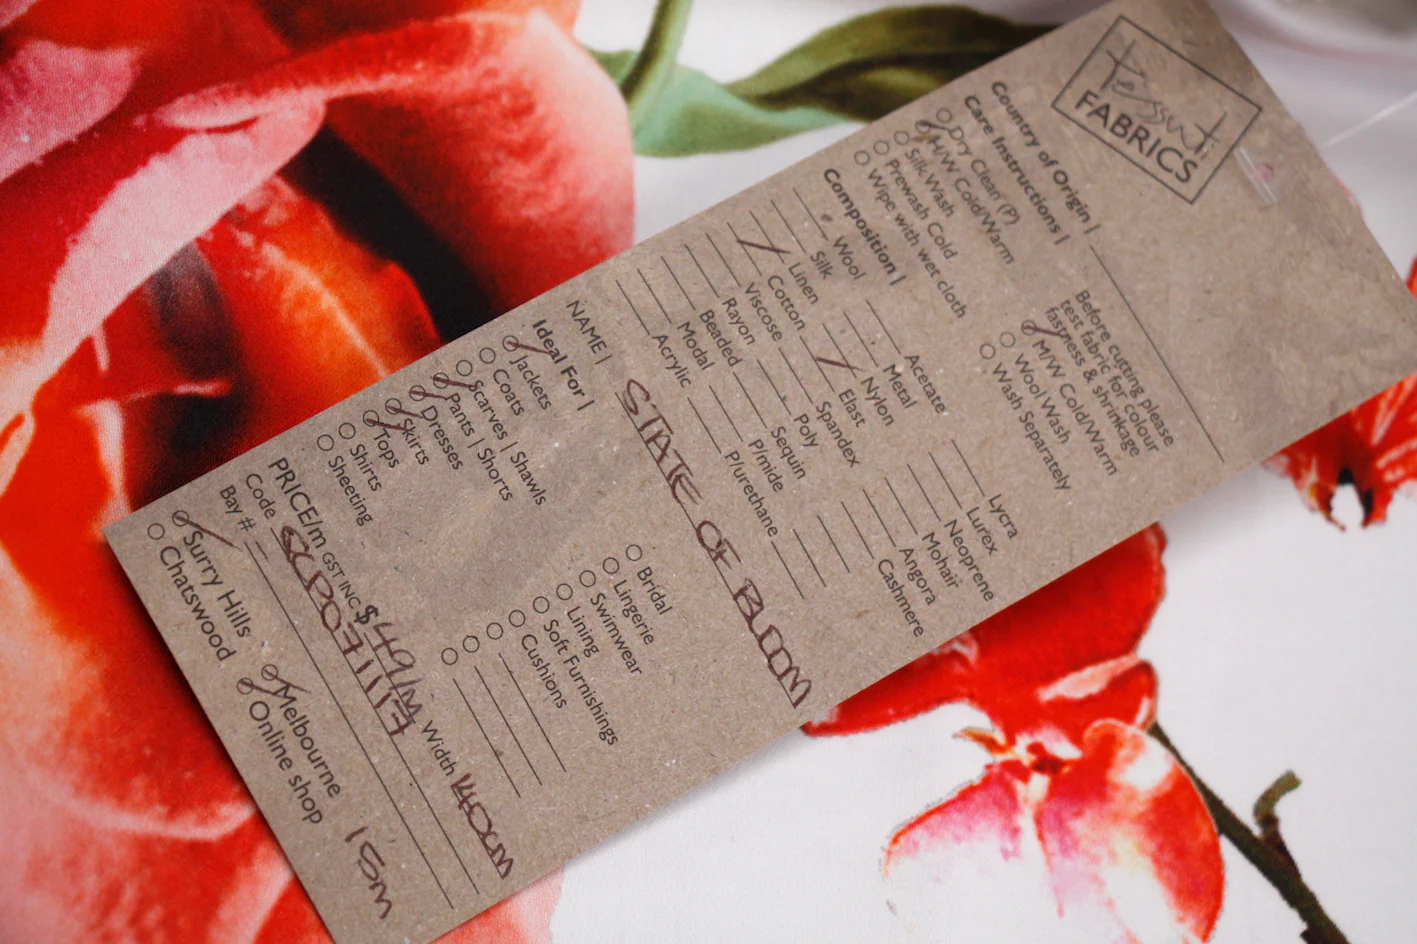 Tessuti
FABRICS
Country of Origin |
Care Instructions |
Dry Clean (P)
H/W Cold/Warm
Silk Wash
Prewash Cold
Wipe with wet cloth
Before cutting please
test fabric for colour
fastness & shrinkage
M/W Cold/Warm
Wool Wash
Wash Separately
Composition |
Wool
Silk
Linen
Cotton
Viscose
Rayon
Beaded
Modal
Acrylic
Acetate
Metal
Nylon
Elast
Spandex
Poly
Sequin
P/mide
P/urethane
Lycra
Lurex
Neoprene
Mohair
Angora
Cashmere
NAME | STATE OF BLOOM
Ideal For |
Jackets
Coats
Scarves | Shawls
Pants | Shorts
Dresses
Skirts
Tops
Shirts
Sheeting
Bridal
Lingerie
Swimwear
Lining
Soft Furnishings
Cushions
PRICE/m GST INC $ 49/M Width 140CM
Code SCP071117
Bay # –
Surry Hills
Chatswood
Melbourne
Online shop
15m